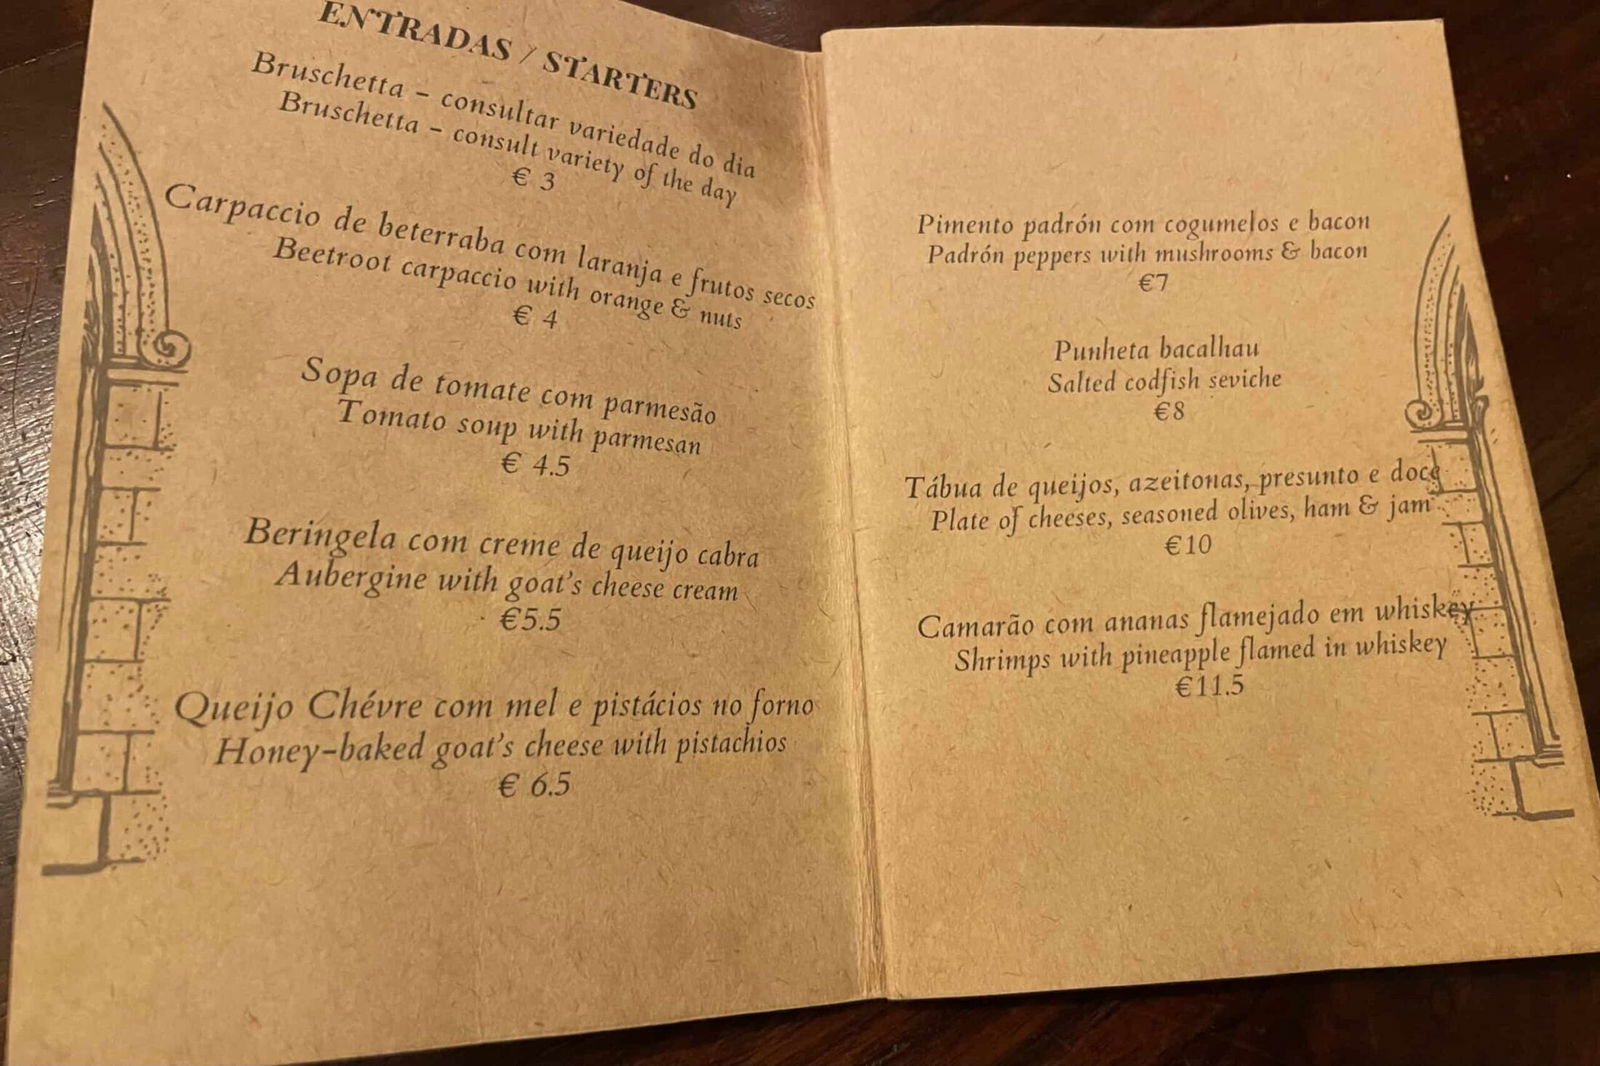 ENTRADAS / STARTERS
Bruschetta - consultar variedade do dia
Bruschetta - consult variety of the day
€ 3
Carpaccio de beterraba com laranja e frutos secos
Beetroot carpaccio with orange & nuts
€ 4
Sopa de tomate com parmesão
Tomato soup with parmesan
€ 4.5
Beringela com creme de queijo cabra
Aubergine with goat's cheese cream
€5.5
Queijo Chévre com mel e pistácios no forno
Honey-baked goat's cheese with pistachios
€ 6.5
Pimento padrón com cogumelos e bacon
Padrón peppers with mushrooms & bacon
€7
Punheta bacalhau
Salted codfish seviche
€8
Tábua de queijos, azeitonas, presunto e doce
Plate of cheeses, seasoned olives, ham & jam
€10
Camarão com ananas flamejado em whiskey
Shrimps with pineapple flamed in whiskey
€11.5